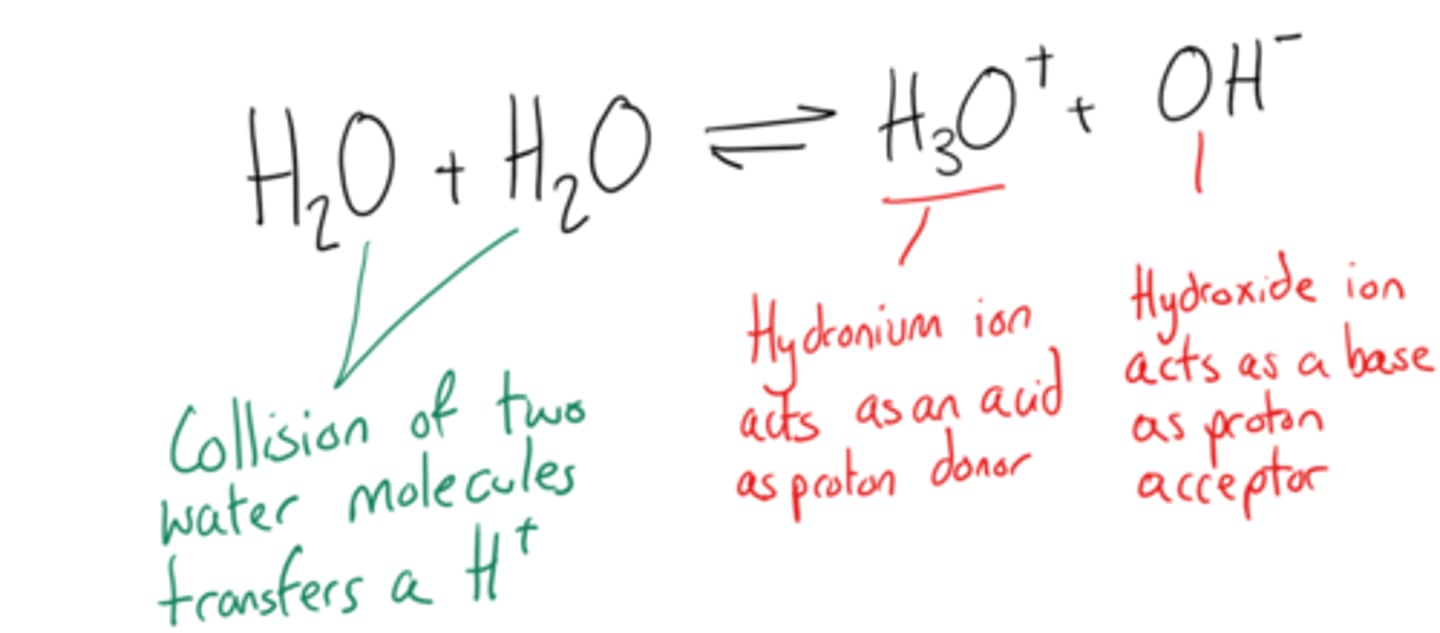 H₂O + H₂O ⇌ H₃O⁺ + OH⁻
Collision of two
water molecules
transfers a H⁺
Hydronium ion
acts as an acid
as proton donor
Hydroxide ion
acts as a base
as proton
acceptor